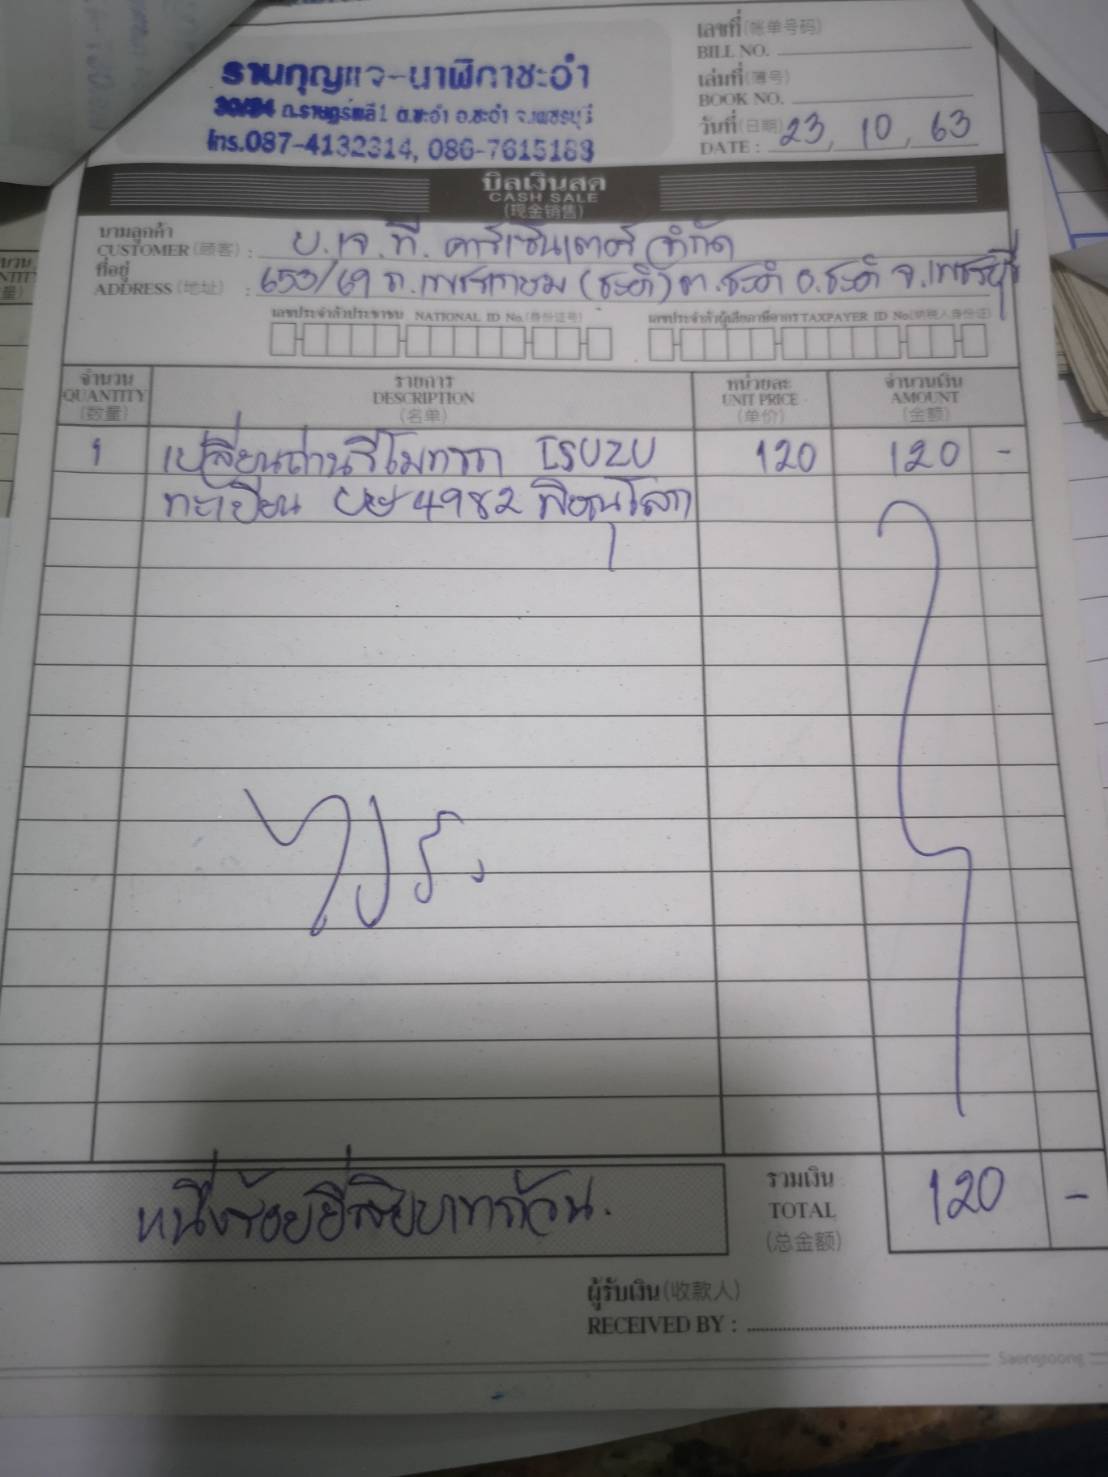 เลขที่(帐单号码)
BILL NO.
เล่มที่(簿号)
BOOK NO.
วันที่(日期) 23, 10, 63
DATE :
ร้านกุญแจ-นาฬิกาชะอำ
30/34 ถ.ราษฎร์พลี 1 ต.ชะอำ อ.ชะอำ จ.เพชรบุรี
โทร.087-4132314, 086-7615183
บิลเงินสด
CASH SALE
(现金销售)
นามลูกค้า
CUSTOMER (顾客) : บ. เจ. ที. คาร์เซ็นเตอร์ จำกัด
ที่อยู่
ADDRESS (地址) : 653/69 ถ. เพชรเกษม (ชะอำ) ต. ชะอำ อ. ชะอำ จ. เพชรบุรี
เลขประจำตัวประชาชน NATIONAL ID No. (身份证号) เลขประจำตัวผู้เสียภาษีอากร TAXPAYER ID No. (纳税人身份证)
จำนวน รายการ หน่วยละ จำนวนเงิน
QUANTITY DESCRIPTION UNIT PRICE AMOUNT
(数量) (名单) (单价) (金额)
1 เปลี่ยนถ่านรีโมทรถ ISUZU 120 120 -
ทะเบียน 4982 พิษณุโลก
หนึ่งร้อยยี่สิบบาทถ้วน.
รวมเงิน
TOTAL 120 -
(总金额)
ผู้รับเงิน (收款人)
RECEIVED BY :